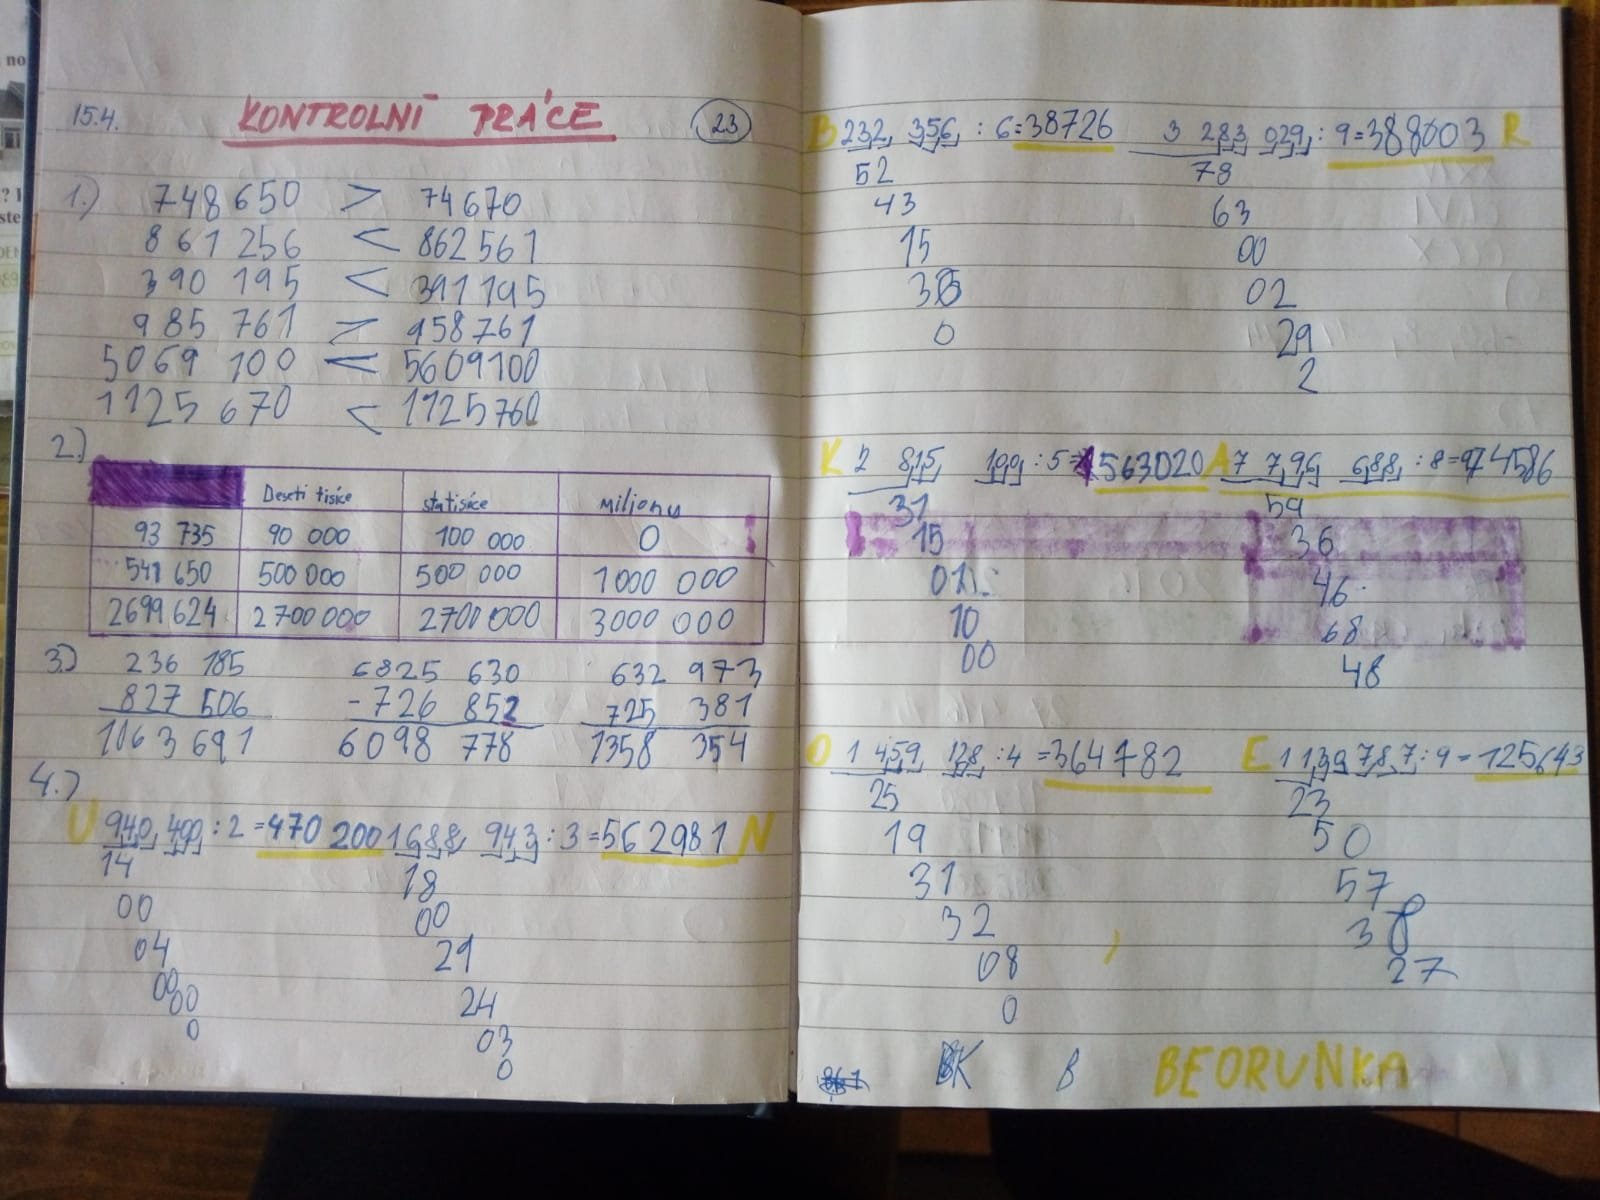 15.4. KONTROLNÍ PRÁCE 23
1.) 748 650 > 74670
861 256 < 862 561
390 195 < 391 195
985 761 > 958761
5069 100 < 5609100
1125 670 < 1125760
2.)
Deseti tisíce statisíce miljony
93 735 90 000 100 000 0
541 650 500 000 500 000 1000 000
2699 624 2 700 000 2700 000 3000 000
3.) 236 185 6825 630 632 973
827 506 - 726 852 725 381
1063 691 6098 778 1358 354
4.)
U 940 400 : 2 = 470 200 1688 943 : 3 = 562981 N
14 18
00 00
04 29
00 24
00 03
0 0
B 232 356 : 6 = 38726 3 283 029 : 9 = 388003 R
52 78
43 63
15 00
36 02
0 29
2
K 2 815 100 : 5 = 563020 A 7 796 688 : 8 = 974586
31 59
15 36
01 46
10 68
00 48
O 1 459 128 : 4 = 364782 E 1 139 787 : 9 = 125643
25 23
19 50
31 57
32 38
08 27
0
K B BEORUNKA